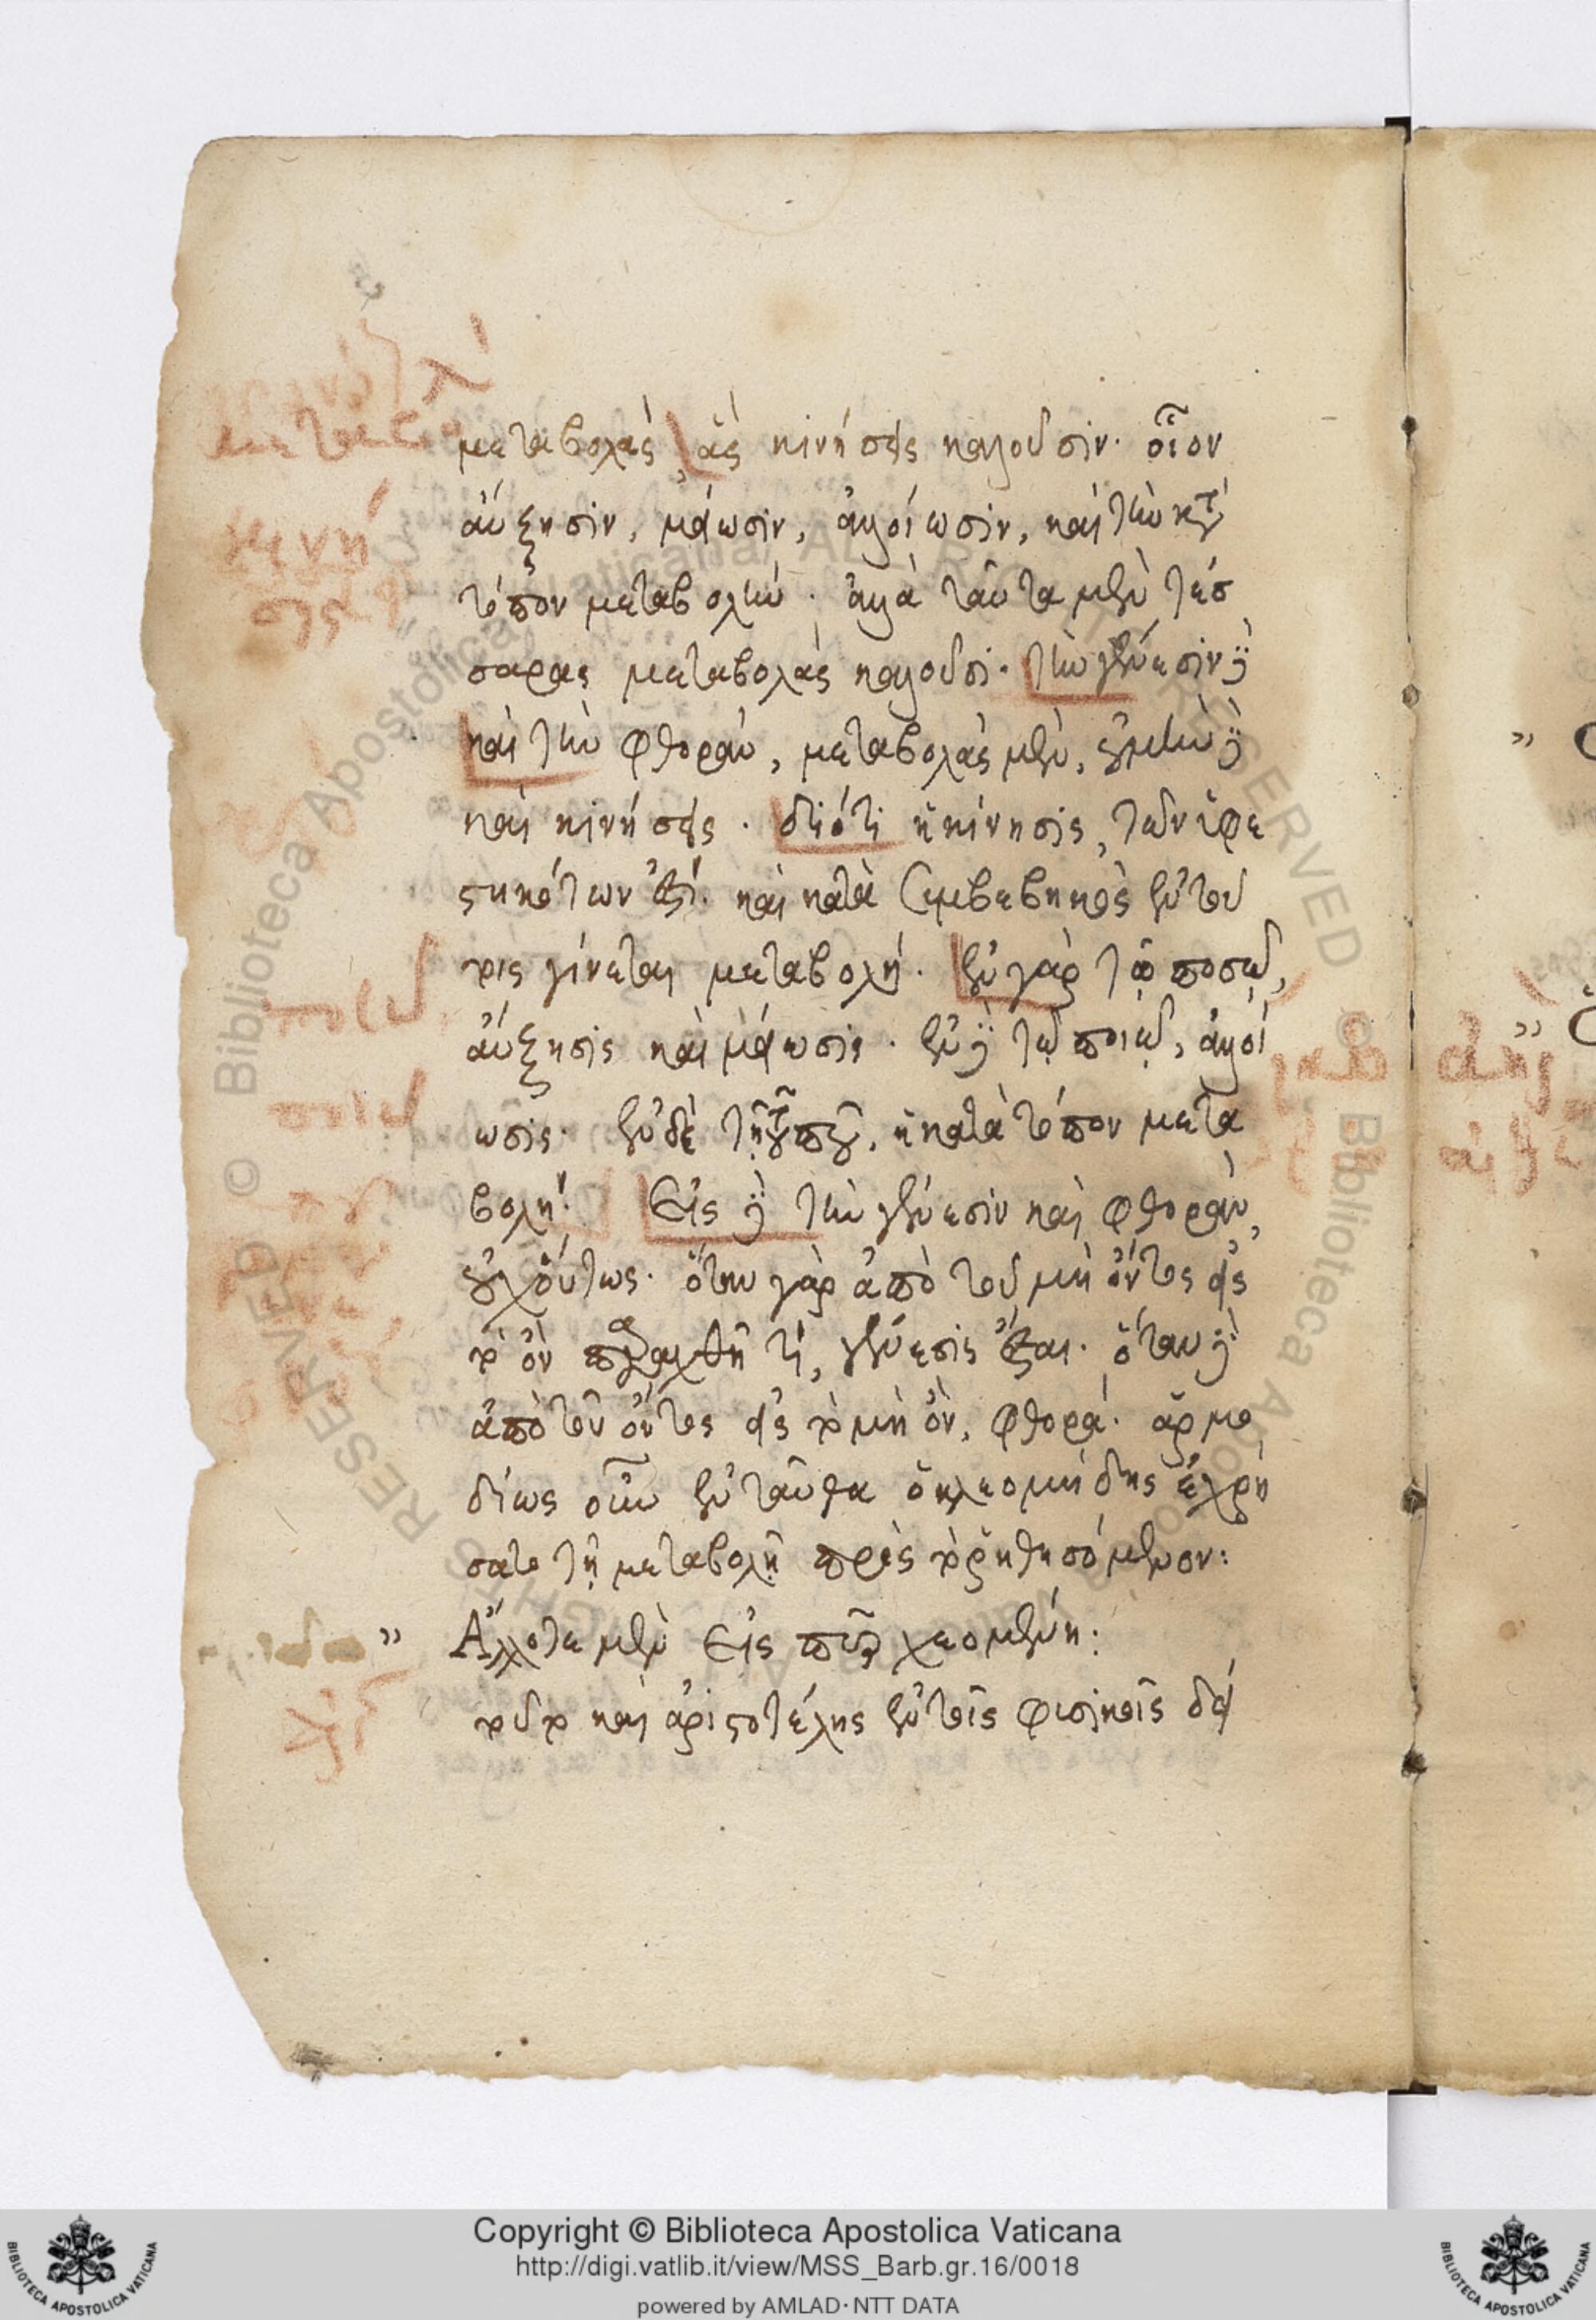 μεταβολὰς, ἃς κινήσεις καλοῦσιν· οἷον
αὔξησιν, μείωσιν, ἀλλοίωσιν, καὶ τὴν κατὰ
τόπον μεταβολήν· ἀλλὰ ταύτα μὲν τέσ
σαρας μεταβολὰς καλοῦσι· τὴν γένεσιν δὲ
καὶ τὴν φθορὰν, μεταβολὰς μὲν, οὐ μὴν δὲ
καὶ κινήσεις· διότι ἡ κίνησις, τῶν ὑφε
στηκότων ἐστί· καὶ κατὰ συμβεβηκὸς ἐν τού
τοις γίνεται μεταβολή· ἐν γὰρ τῶ ποσῶ,
αὔξησις καὶ μείωσις· ἐν δὲ τῶ ποιῶ, ἀλλοί
ωσις· ἐν δὲ τῆ τοῦ ποῦ, ἡ κατὰ τόπον μετα
βολή· Εἰς δὲ τὴν γένεσιν καὶ φθορὰν,
οὐχ οὕτως· ὅταν γὰρ ἀπὸ τοῦ μὴ ὄντος εἰς
τὸ ὂν παραχθῆ τί, γένεσις ἔσται· ὅταν δὲ
ἀπὸ τοῦ ὄντος εἰς τὸ μὴ ὂν, φθορά· ἁρμο
δίως οὖν ἐνταῦθα ὁ κλεομήδης ἐχρή
σατο τῆ μεταβολῆ πρὸς τὸ ῥηθησόμενον:
" Ἄλλοτε μὲν εἰς πῦρ χεομένη:
τοῦτο καὶ ἀριστοτέλης ἐν τοῖς φυσικοῖς δεί
κινή
σεις
ποσῶ
ποιῶ
Copyright © Biblioteca Apostolica Vaticana
http://digi.vatlib.it/view/MSS_Barb.gr.16/0018
powered by AMLAD·NTT DATA